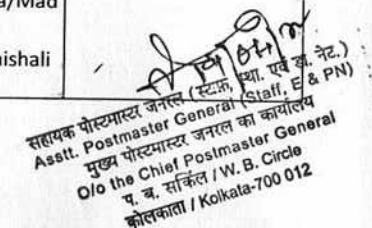 a/Mad
ishali
सहायक पोस्टमास्टर जनरल (स्टाफ, स्था. एवं डा. नेट.)
Asstt. Postmaster General (Staff, E & PN)
मुख्य पोस्टमास्टर जनरल का कार्यालय
O/o the Chief Postmaster General
प. ब. सर्किल / W. B. Circle
कोलकाता / Kolkata-700 012